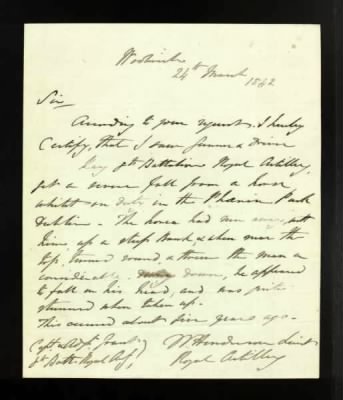 Woolwich
24th March
1842
Sir
According to your request, I hereby
Certify, that I saw Gunner & Driver
8th Battalion Royal Artillery,
get a severe fall from a horse
whilst on duty in the Phoenix Park
Dublin. The horse had run away with
him, up a steep bank, & when near the
top, turned round, & threw the man a
considerable down, he appeared
to fall on his head, and was quite
stunned when taken up.
This occurred about five years ago.
Captn & Adjt Grant
8th Battn Royal Art
W Henderson Lieut
Royal Artillery